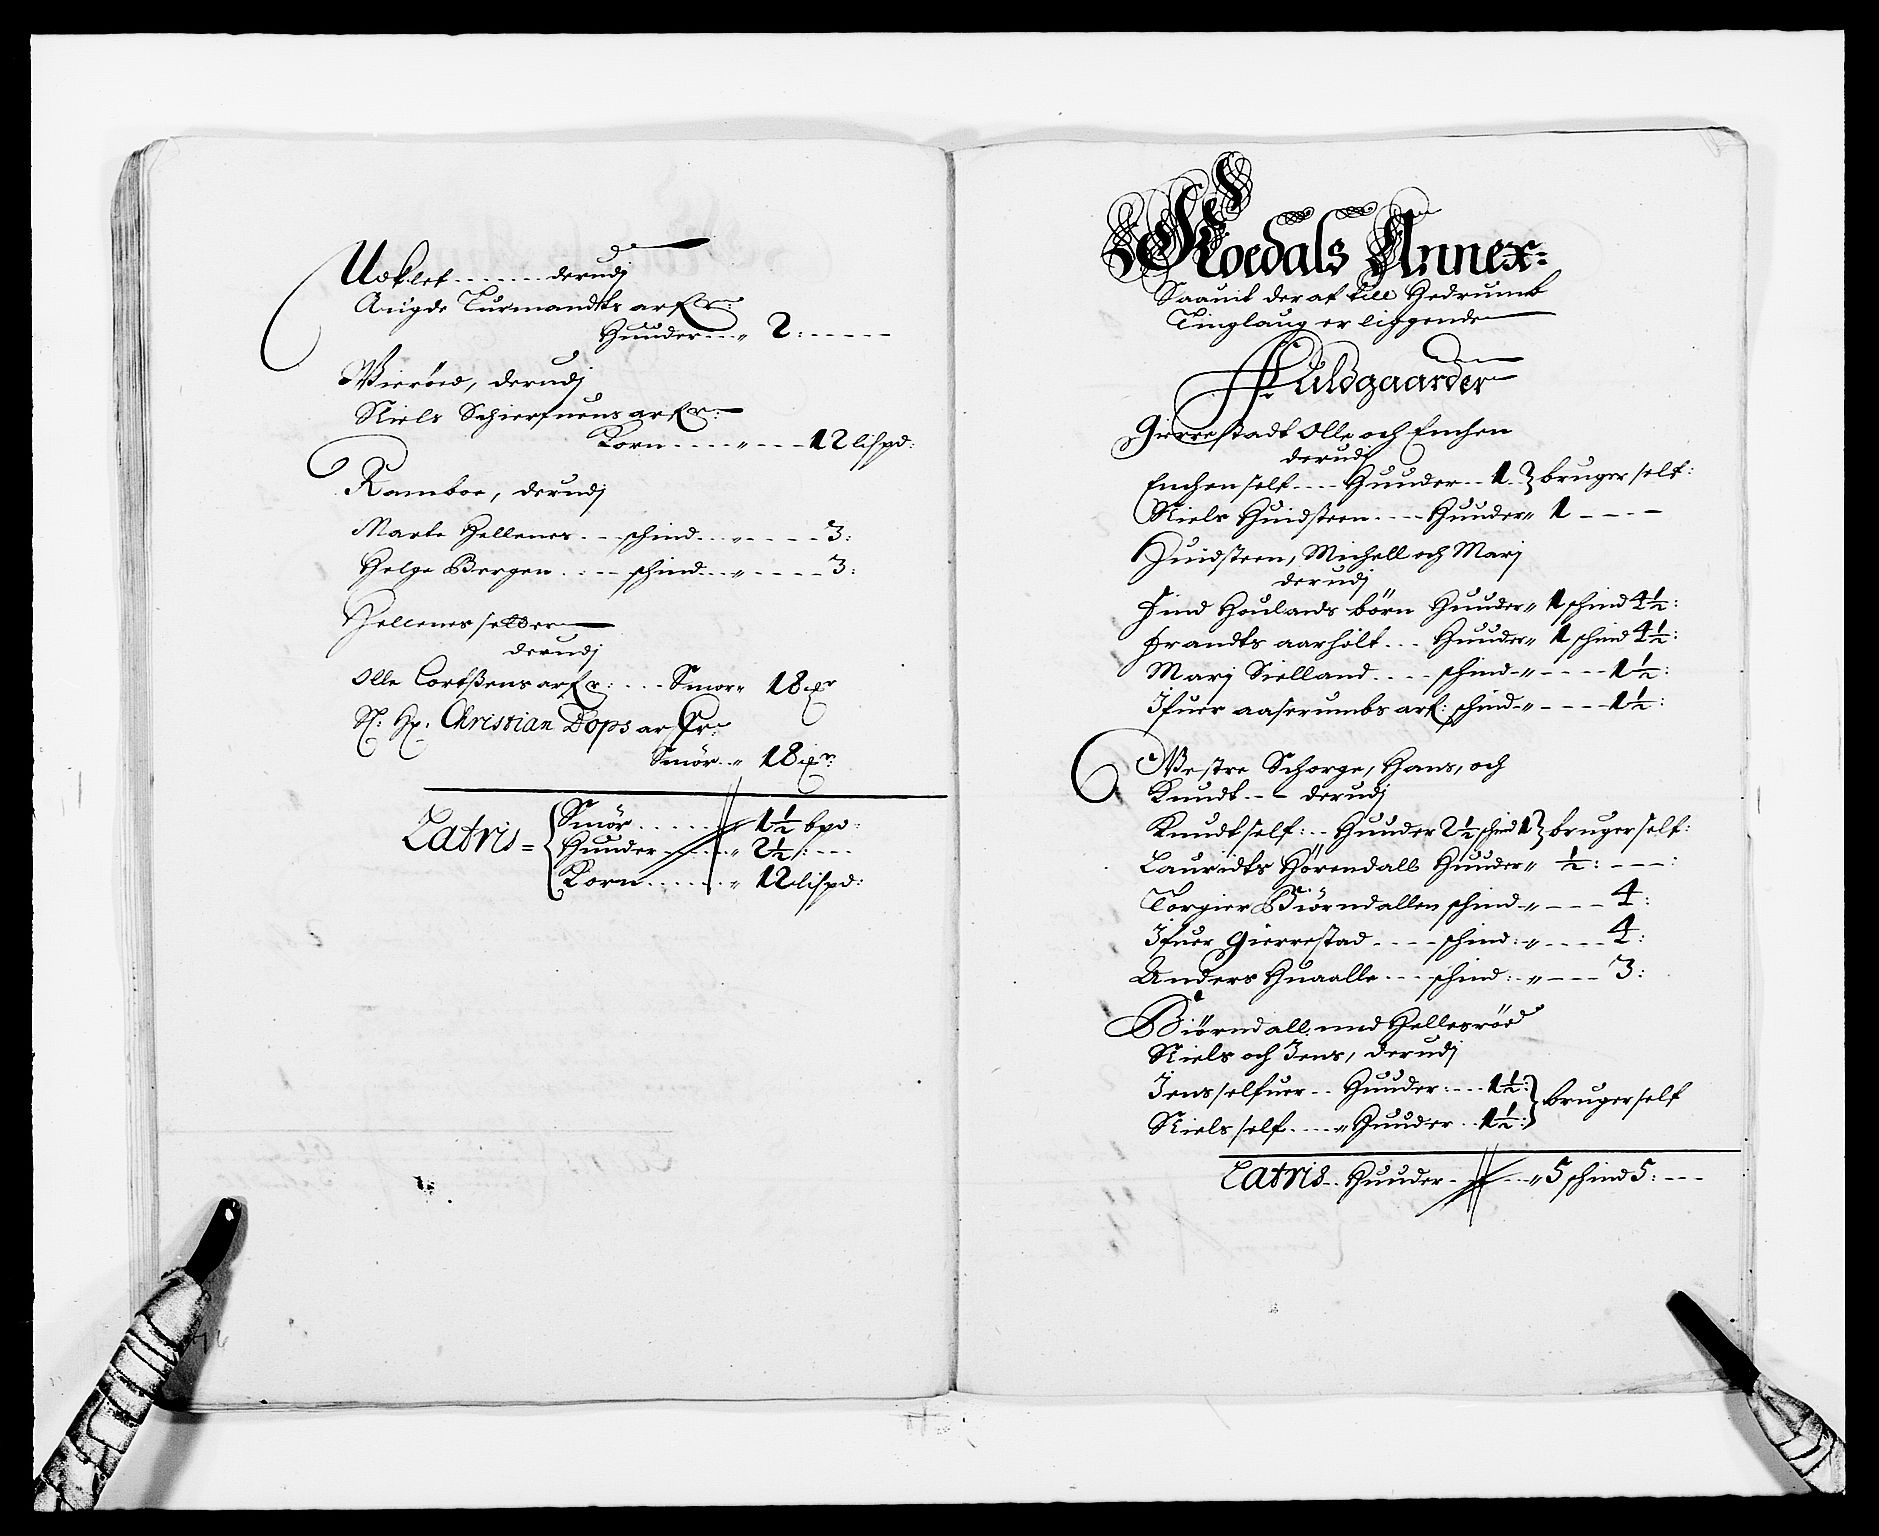 Uoklef . . . . . . derudj
Augde Turmandts arfr:
Huuder . . „ 2: - - - - -
Wierøed, derudj
Niels Schierfuens arfr:
Korn . . . . „ - - - 12 lispd:
Ramboe, derudj
Marte Hellenes . . . schind . . „ - - - - 3:
Helge Bergen . : - - schind . . „ - - - - 3:
Hellenes
derudj
Olle Cortßens arfr: . . . Smør „ 18
Sl: Hr. Christian Dops arfr:
Smør . . „ 18
Latris = Smør . . . . . „ 1½ bpd:
Huuder . . . . „ 2½: - - -
Korn . . . . . . „ 12 lispd:
Koedals Annex:
Saauit deraf till Hedrumb
Tinglaug er liggende
Fuldgaarder
Gierrestadt Olle och Enchen
derudj
Enchen self . . . . Huuder . . 1 . } bruger self:
Niels Huidsteen . . . . Huuder „ 1 - - - -
Huidsteen, Michell och Marj
derudj
Find Houlands børn Huuder „ 1 schind 4½:
Frandts aarholt . . . Huuder „ 1 schind 4½:
Marj Sielland . . . . schind „ - - - - 1½:
Ifuer aaserumbs arf: schind „ - - - - 1½:
Westre Schorge, Hans, och
Knudt . . - derudj
Knudt self: . . Huuder 2½ schind 1 } bruger self:
Lauridts Hørendall Huuder „ ½: - - - :
Torgier Biørndallen schind „ - - - 4:
Ifuer Gierrestad . . . . schind: „ - - - - 4:
Anders Huaalle . . . schind: „ - - - 3:
Biørndall med Hellesrøed
Niels och Jens, derudj
Jens selfuer . . Huuder: . . . 1½: } bruger self
Niels self . . . . „ Huuder . . 1½:
Latris . . Huuder . . . . „ 5 schind 5: - - -